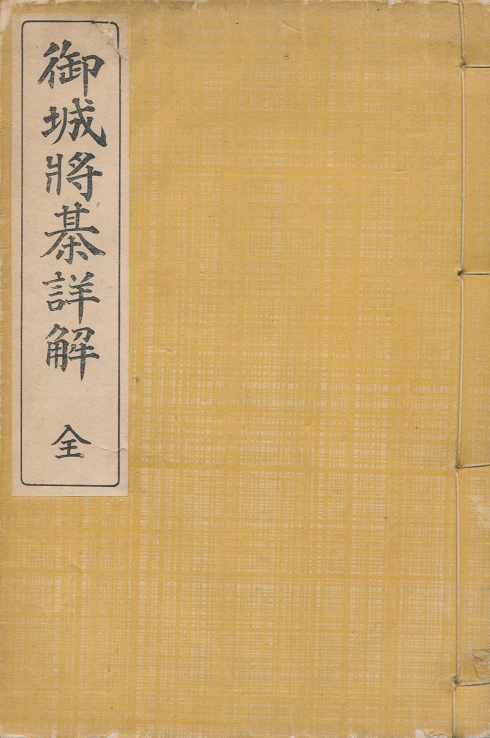 御城將棊詳解 全